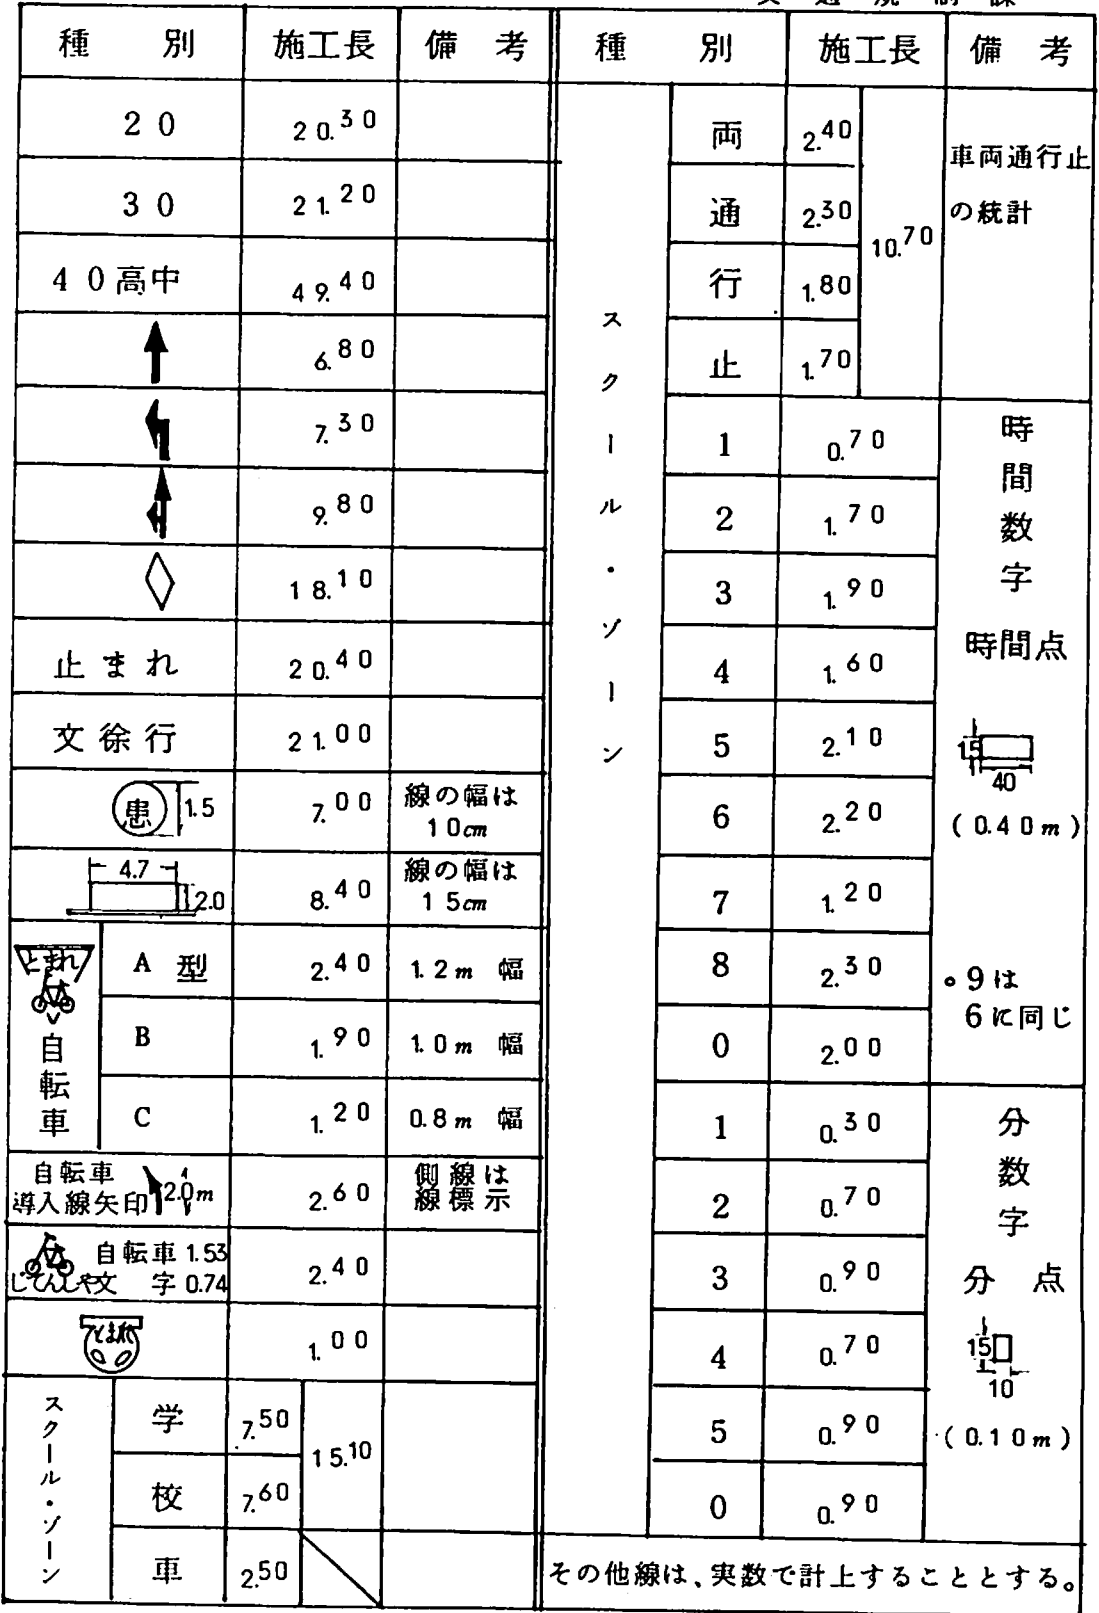 種 別 施工長 備 考
20 20.30
30 21.20
40高中 49.40
6.80
7.30
9.80
18.10
止まれ 20.40
文徐行 21.00
患 1.5 7.00 線の幅は
10cm
4.7 2.0 8.40 線の幅は
15cm
とまれ
自転車
A 型 2.40 1.2m 幅
B 1.90 1.0m 幅
C 1.20 0.8m 幅
自転車
導入線矢印 2.0m 2.60 側線は
線標示
自転車 1.53
じてんしゃ文 字 0.74 2.40
とまれ 1.00
スクール・ゾーン
学 7.50 15.10
校 7.60
車 2.50
種 別 施工長 備 考
スクール・ゾーン
両 2.40 10.70 車両通行止
通 2.30 の統計
行 1.80
止 1.70
1 0.70
2 1.70
3 1.90
4 1.60
5 2.10
6 2.20
7 1.20
8 2.30
0 2.00
時間数字
時間点
15
40
(0.40m)
。9は
6に同じ
1 0.30
2 0.70
3 0.90
4 0.70
5 0.90
0 0.90
分数字
分 点
15
10
(0.10m)
その他線は、実数で計上することとする。